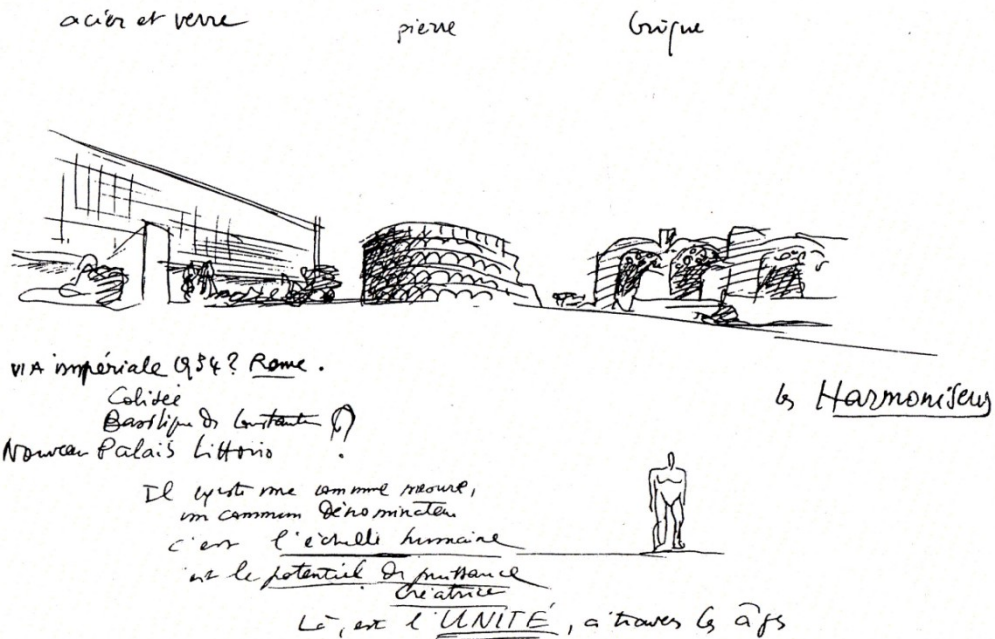 acier et verre
pierre
brique
VIA impériale 1934? Rome.
Colisée
Basilique de Constantin (?)
Nouveau Palais Littorio
les Harmoniseurs
Il existe une commune mesure,
un commun dénominateur
c'est l'échelle humaine
est le potentiel de puissance
créatrice
Là, est l'UNITÉ, à travers les âges